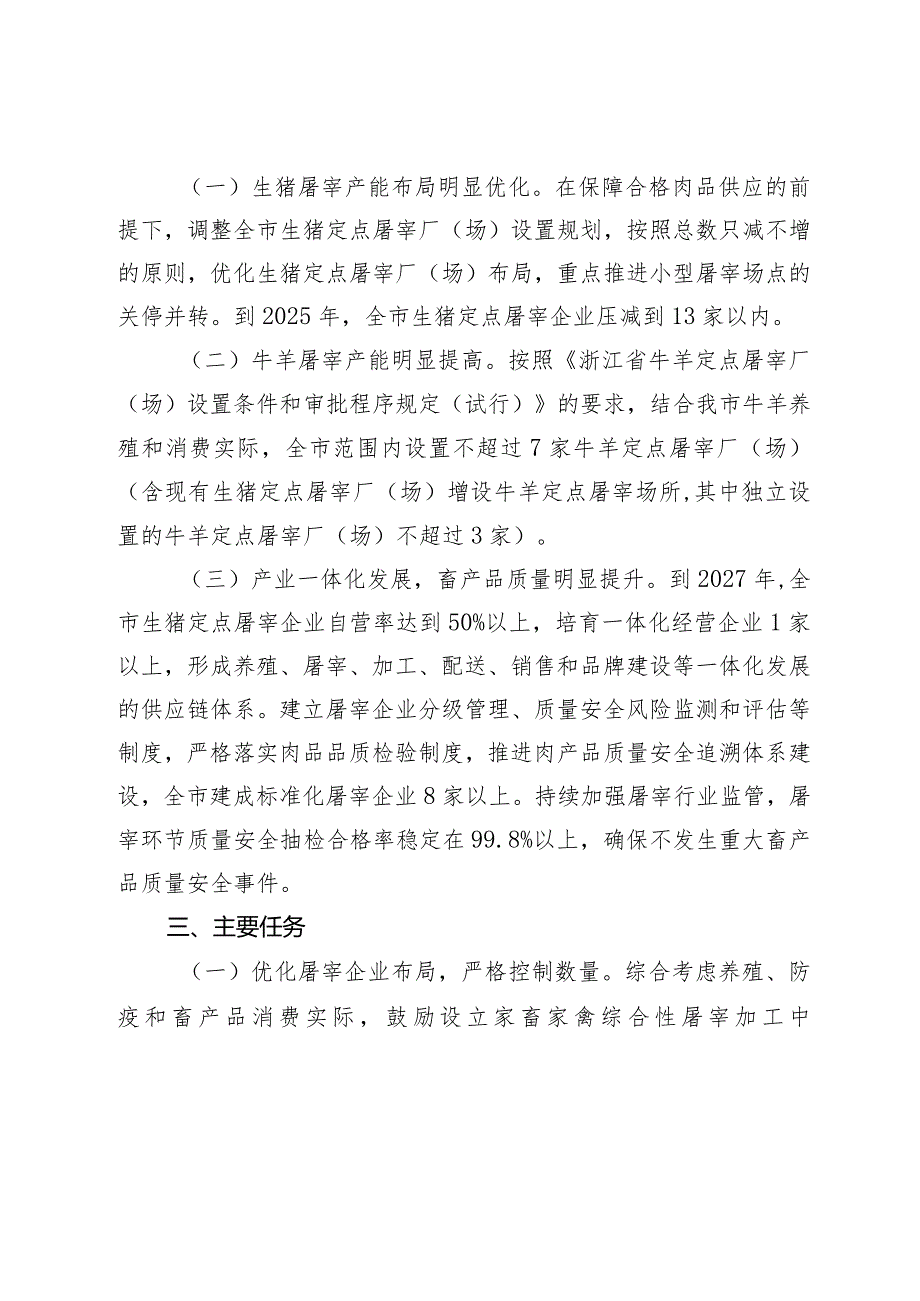 （一）生猪屠宰产能布局明显优化。在保障合格肉品供应的前
提下，调整全市生猪定点屠宰厂（场）设置规划，按照总数只减不增
的原则，优化生猪定点屠宰厂（场）布局，重点推进小型屠宰场点的
关停并转。到 2025 年，全市生猪定点屠宰企业压减到 13 家以内。
（二）牛羊屠宰产能明显提高。按照《浙江省牛羊定点屠宰厂
（场）设置条件和审批程序规定（试行）》的要求，结合我市牛羊养
殖和消费实际，全市范围内设置不超过 7 家牛羊定点屠宰厂（场）
（含现有生猪定点屠宰厂（场）增设牛羊定点屠宰场所,其中独立设
置的牛羊定点屠宰厂（场）不超过 3 家）。
（三）产业一体化发展，畜产品质量明显提升。到 2027 年,全
市生猪定点屠宰企业自营率达到 50%以上，培育一体化经营企业 1 家
以上，形成养殖、屠宰、加工、配送、销售和品牌建设等一体化发展
的供应链体系。建立屠宰企业分级管理、质量安全风险监测和评估等
制度，严格落实肉品品质检验制度，推进肉产品质量安全追溯体系建
设，全市建成标准化屠宰企业 8 家以上。持续加强屠宰行业监管，屠
宰环节质量安全抽检合格率稳定在 99.8%以上，确保不发生重大畜产
品质量安全事件。
三、主要任务
（一）优化屠宰企业布局，严格控制数量。综合考虑养殖、防
疫和畜产品消费实际，鼓励设立家畜家禽综合性屠宰加工中